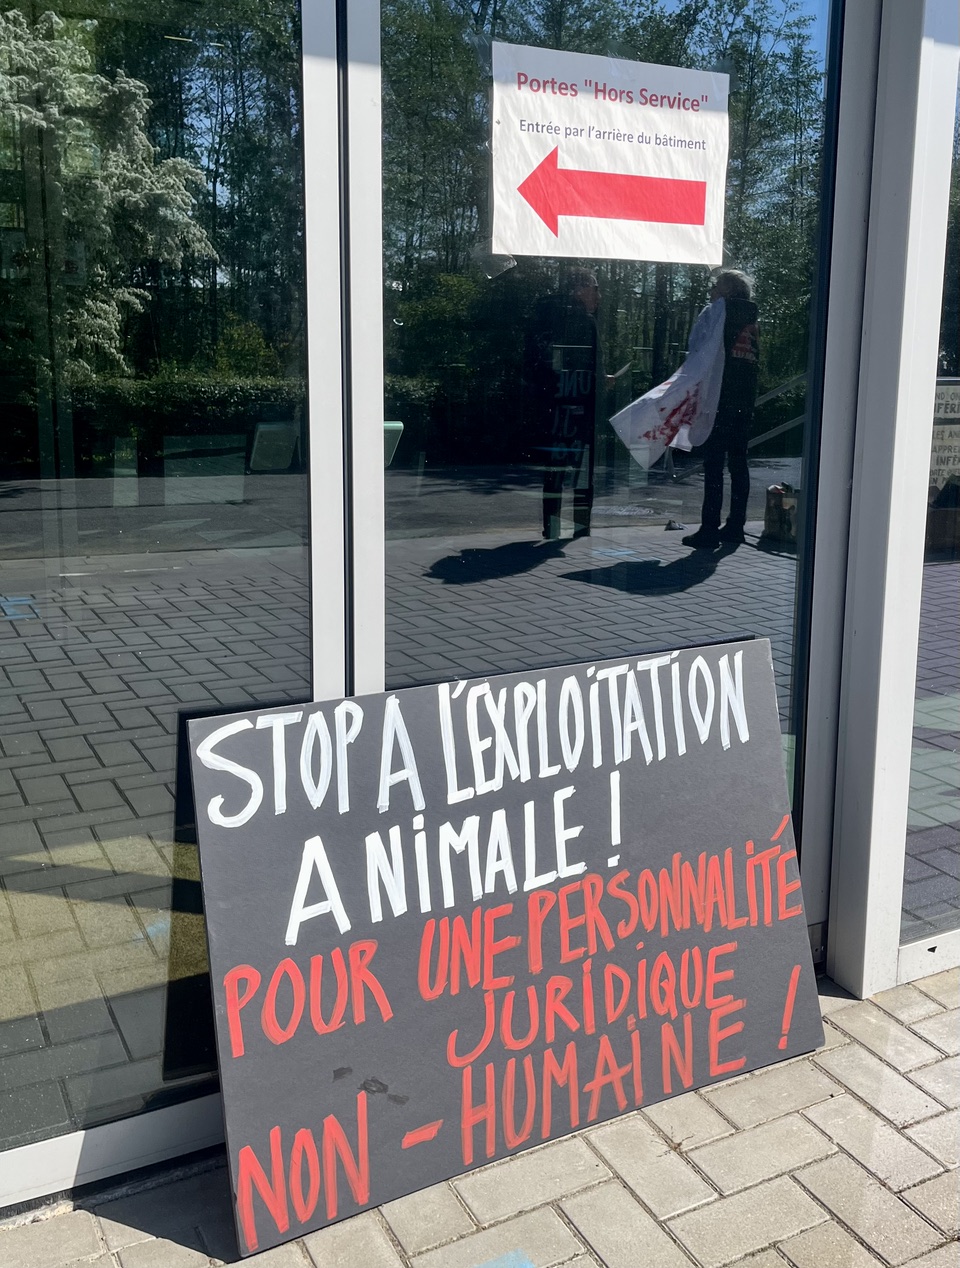 Portes "Hors Service"
Entrée par l'arrière du bâtiment
STOP A L'EXPLOITATION
ANIMALE !
POUR UNE PERSONNALITÉ
JURIDIQUE
NON-HUMAINE !